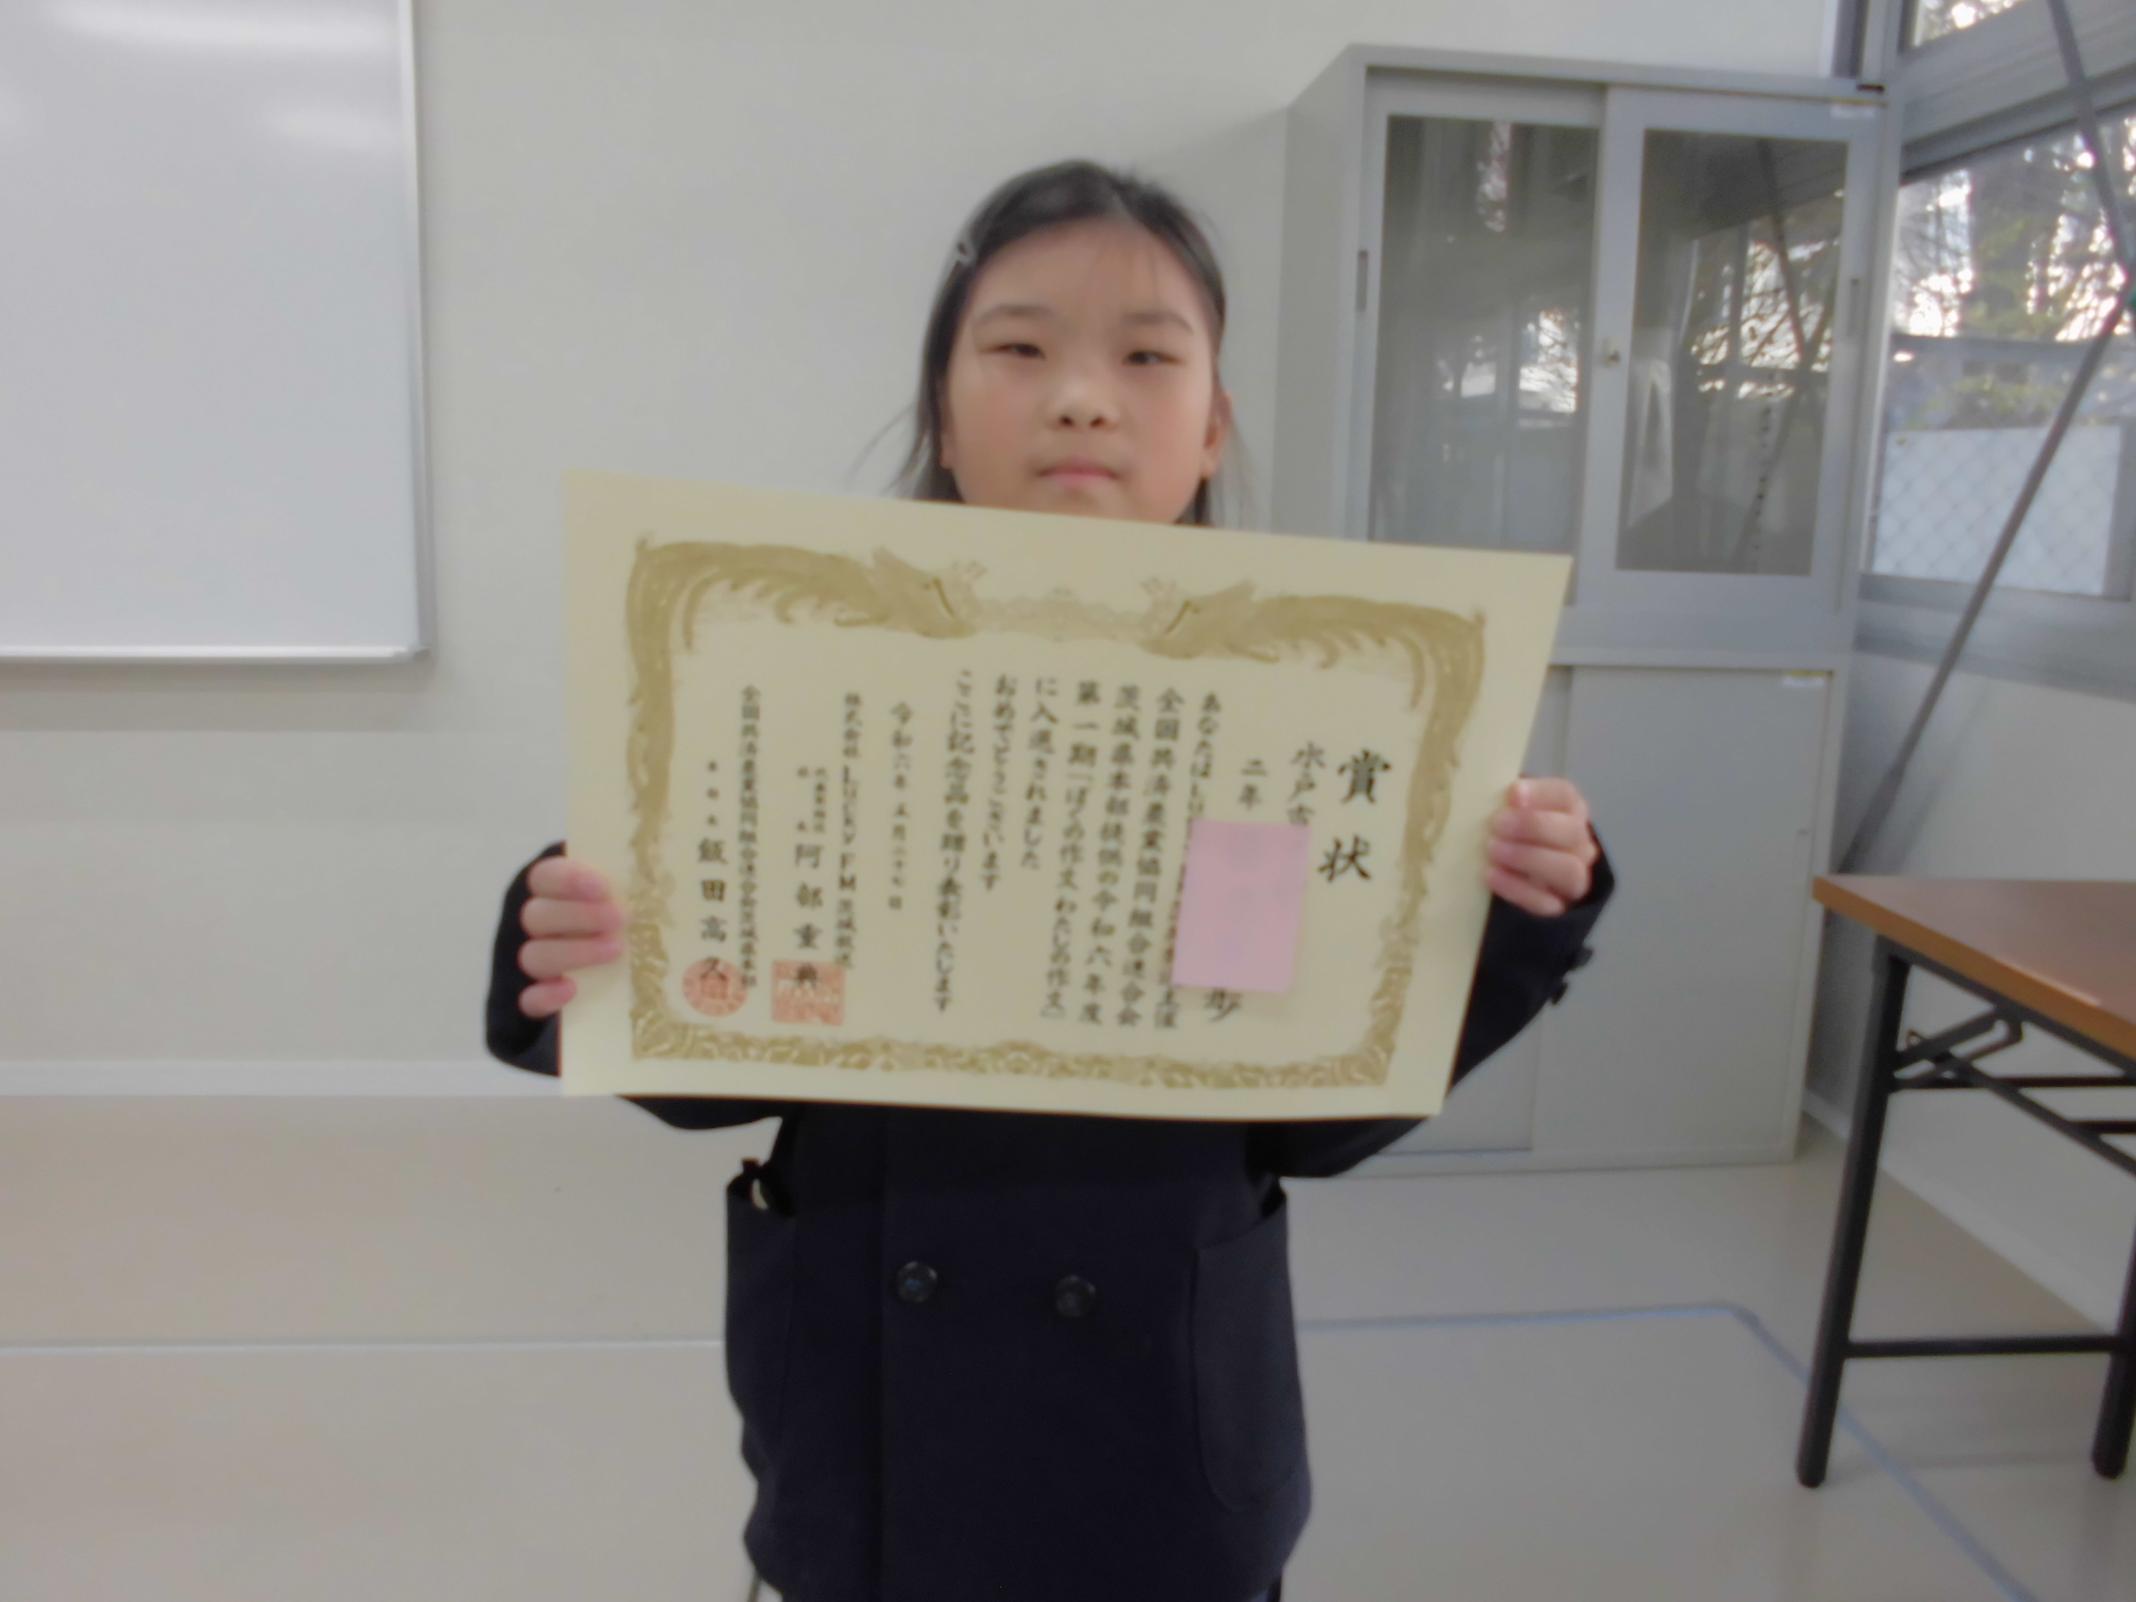 賞状
水戸市
二年
歩
あなたはLu
全国共済農業協同組合連合会
茨城県本部提供の令和六年度
第一期「ぼくの作文 わたしの作文」
に入選されました
おめでとうございます
ここに記念品を贈り表彰いたします
令和六年 五月二十七日
株式会社 LuckyFM 茨城放送
代表取締役
社長 阿部重典
全国共済農業協同組合連合会茨城県本部
本部長 飯田高久